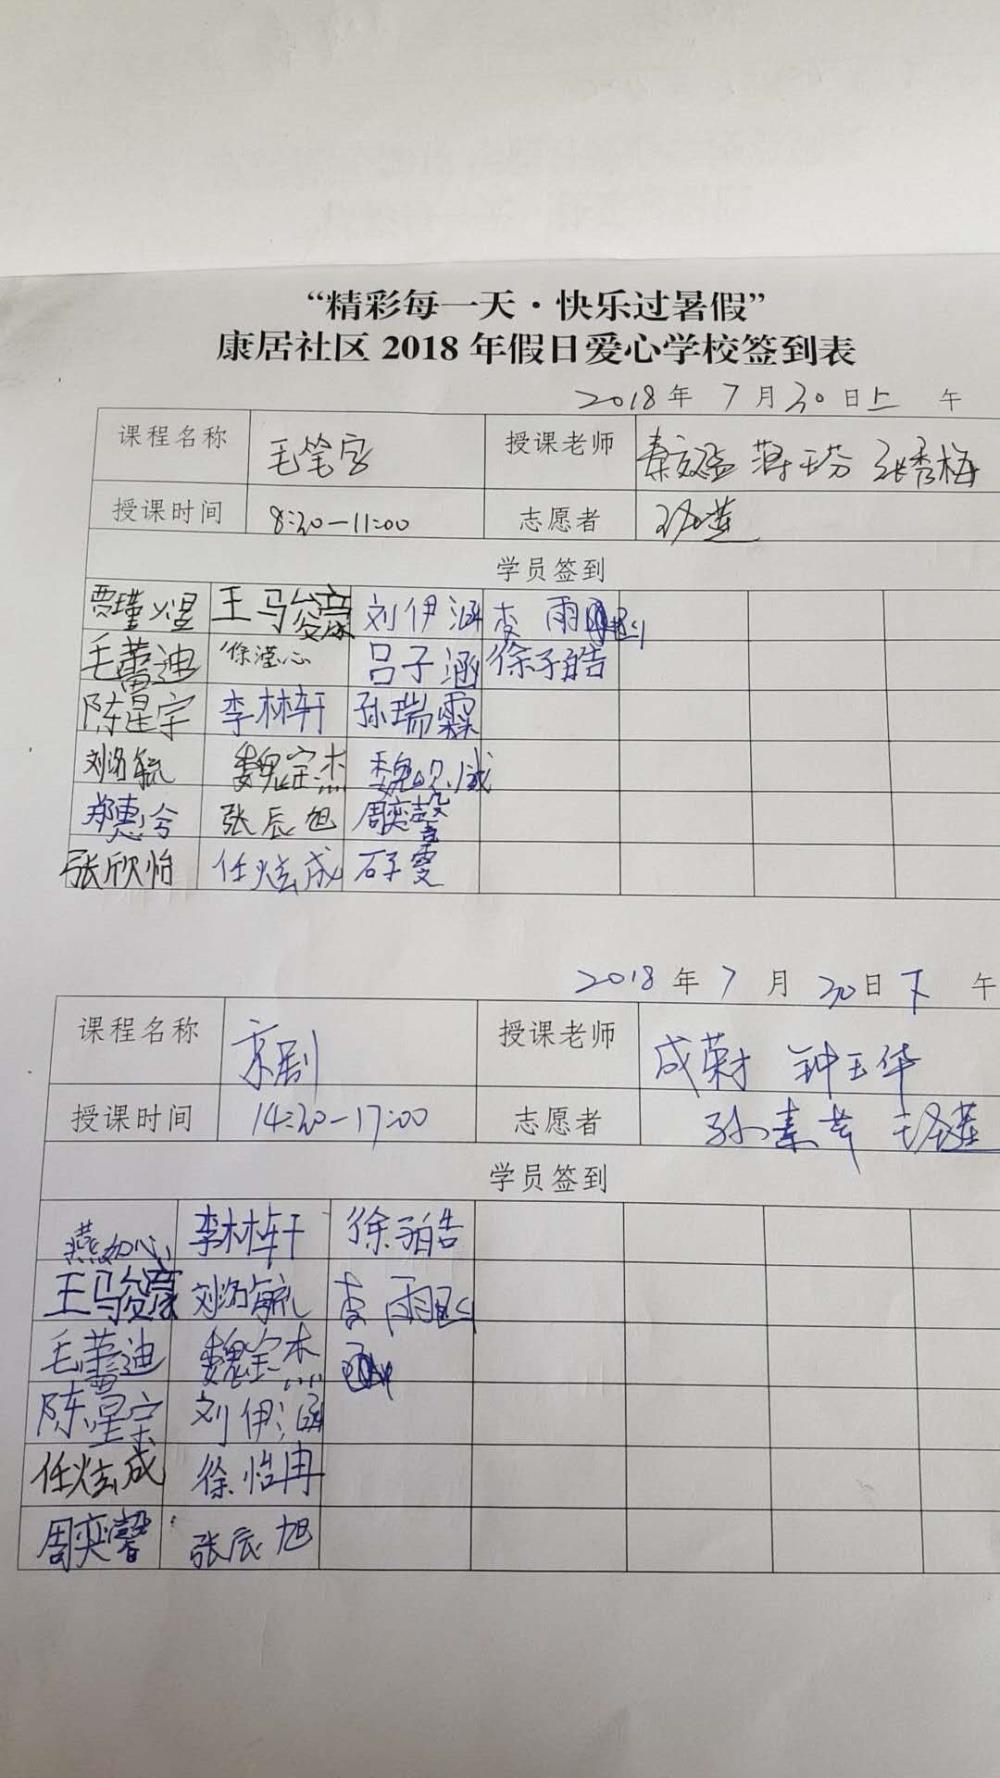 “精彩每一天·快乐过暑假”
康居社区 2018 年假日爱心学校签到表
2018 年 7 月 30 日 上 午
课程名称 毛笔字 授课老师 秦文 薄玉芬 张秀梅
授课时间 8:30—11:00 志愿者
学员签到
贾瑾煜 王马俊彦 刘伊涵 李雨
毛蕾迪 徐滢心 吕子涵 徐子皓
陈星宇 李林轩 孙瑞霖
刘洺毓 魏宗杰 魏
郑惠兮 张辰旭 周奕馨
张欣怡 任炫成 石子雯
2018 年 7 月 30 日 下 午
课程名称 京剧 授课老师 成荣才 钟玉华
授课时间 14:30—17:00 志愿者 孙素芳 王圣莲
学员签到
燕如心 李林轩 徐子皓
王马俊彦 刘洺毓 李雨
毛蕾迪 魏宗杰
陈星宇 刘伊涵
任炫成 徐怡冉
周奕馨 张辰旭